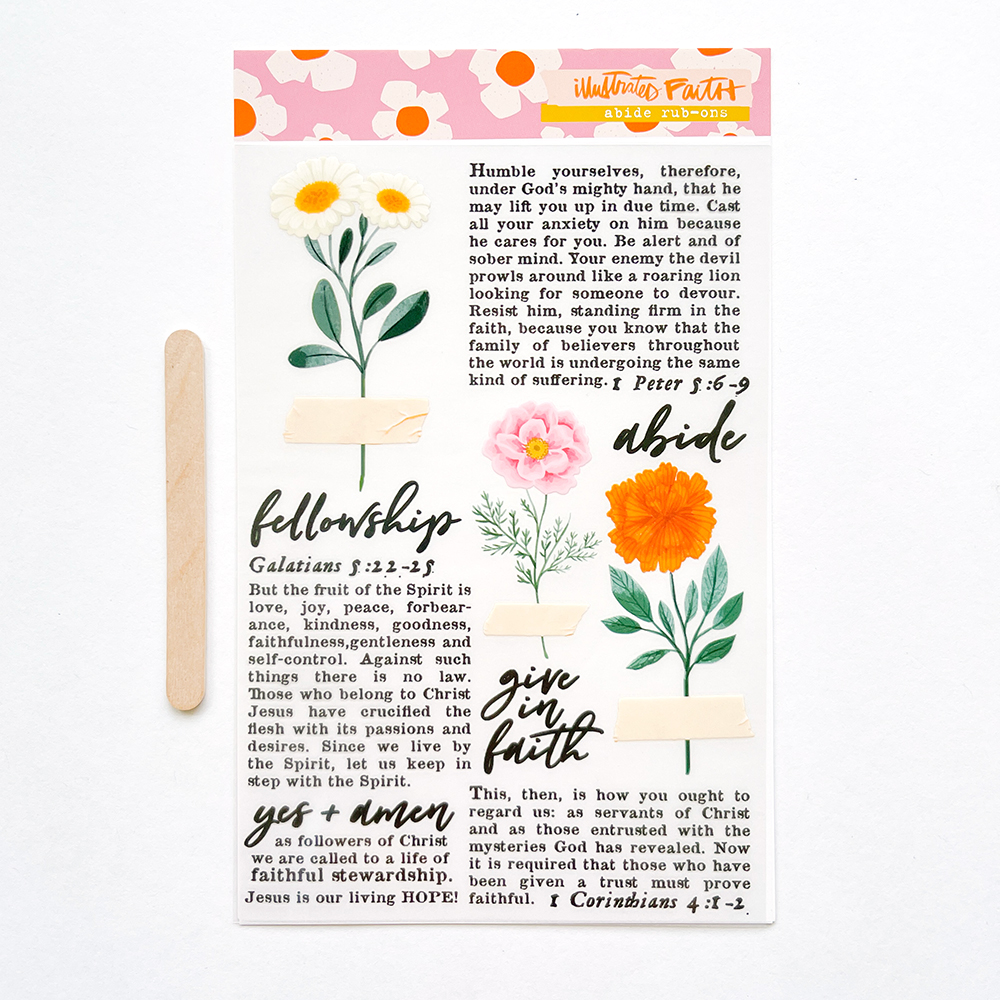 illustrated FAITH
abide rub-ons
Humble yourselves, therefore,
under God's mighty hand, that he
may lift you up in due time. Cast
all your anxiety on him because
he cares for you. Be alert and of
sober mind. Your enemy the devil
prowls around like a roaring lion
looking for someone to devour.
Resist him, standing firm in the
faith, because you know that the
family of believers throughout
the world is undergoing the same
kind of suffering. 1 Peter 5:6-9
abide
fellowship
Galatians 5:22-25
But the fruit of the Spirit is
love, joy, peace, forbear-
ance, kindness, goodness,
faithfulness,gentleness and
self-control. Against such
things there is no law.
Those who belong to Christ
Jesus have crucified the
flesh with its passions and
desires. Since we live by
the Spirit, let us keep in
step with the Spirit.
give
in
faith
yes + amen
as followers of Christ
we are called to a life of
faithful stewardship.
Jesus is our living HOPE!
This, then, is how you ought to
regard us: as servants of Christ
and as those entrusted with the
mysteries God has revealed. Now
it is required that those who have
been given a trust must prove
faithful. 1 Corinthians 4:1-2